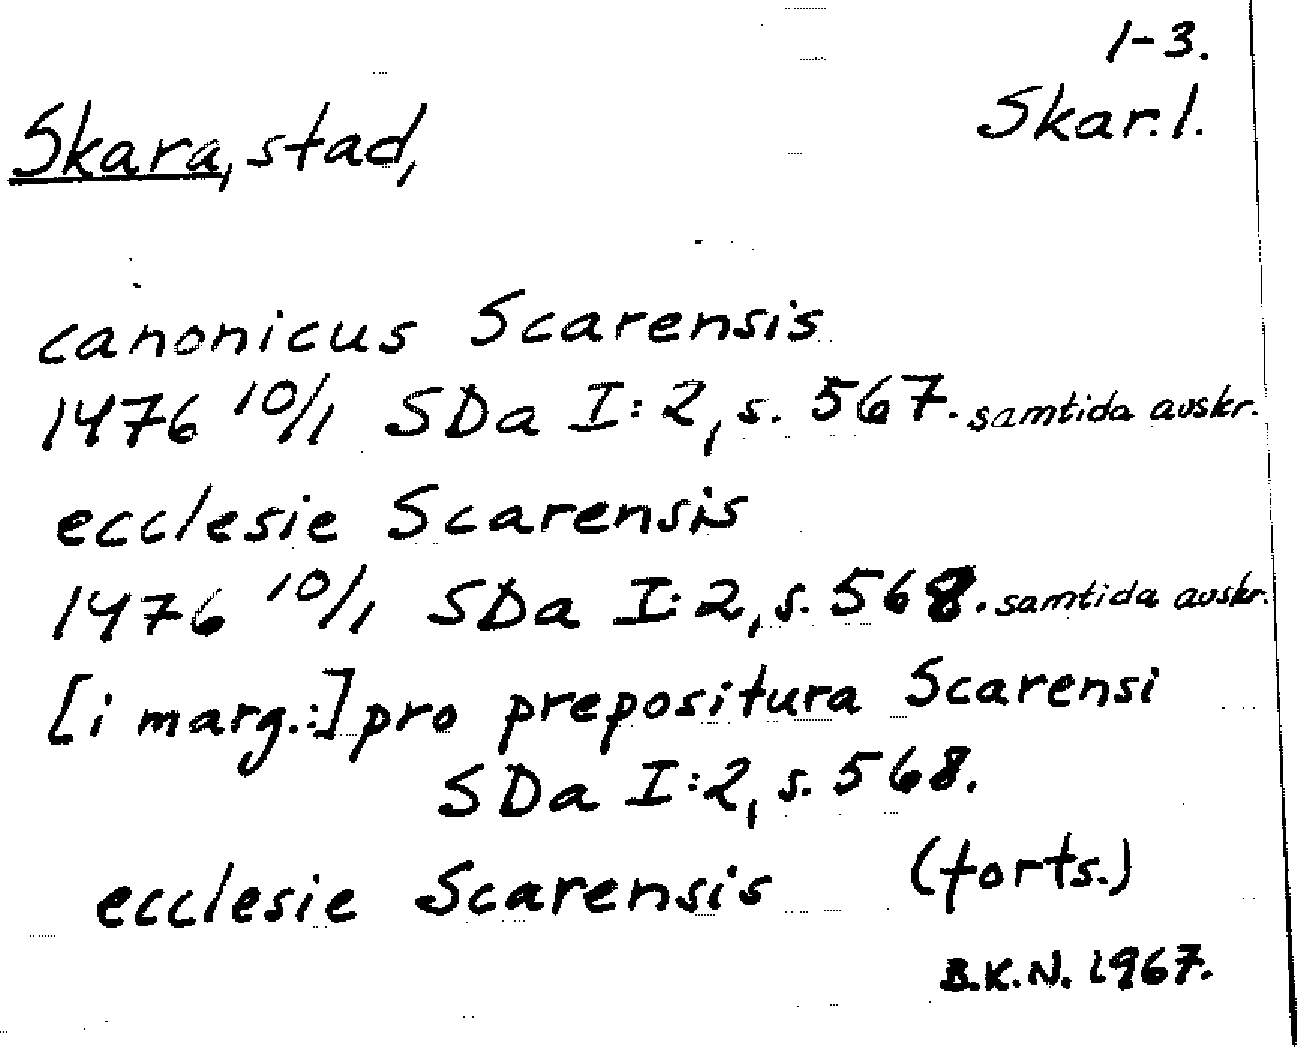 1-3.
Skara, stad,
Skar. l.
canonicus Scarensis
1476 10/1 SDa I:2, s. 567. samtida avskr.
ecclesie Scarensis
1476 10/1 SDa I:2, s. 568. samtida avskr.
[i marg.:] pro prepositura Scarensi
SDa I:2, s. 568.
ecclesie Scarensis (forts.)
B.K.N. 1967.